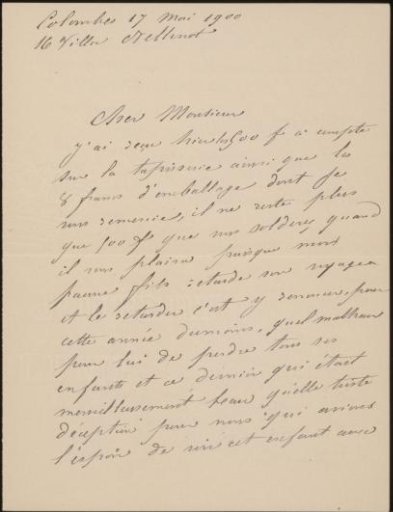 Colombes 17 Mai 1900
16 Villa
Cher Monsieur
j'ai reçu hier 1500 f a compte
sur la tapisserie ainsi que les
8 francs d'emballage dont je
vous remercie, il ne reste plus
que 500 f que vous solderez quand
il vous plaira puisque mon
pauvre fils retarde son voyage
et le retarder c'est y renoncer, pour
cette année dumoins, quel malheur
pour lui de perdre tous ses
enfants et ce dernier qui était
merveilleusement beau quelle triste
déception pour nous qui avions
l'espoir de voir cet enfant avec